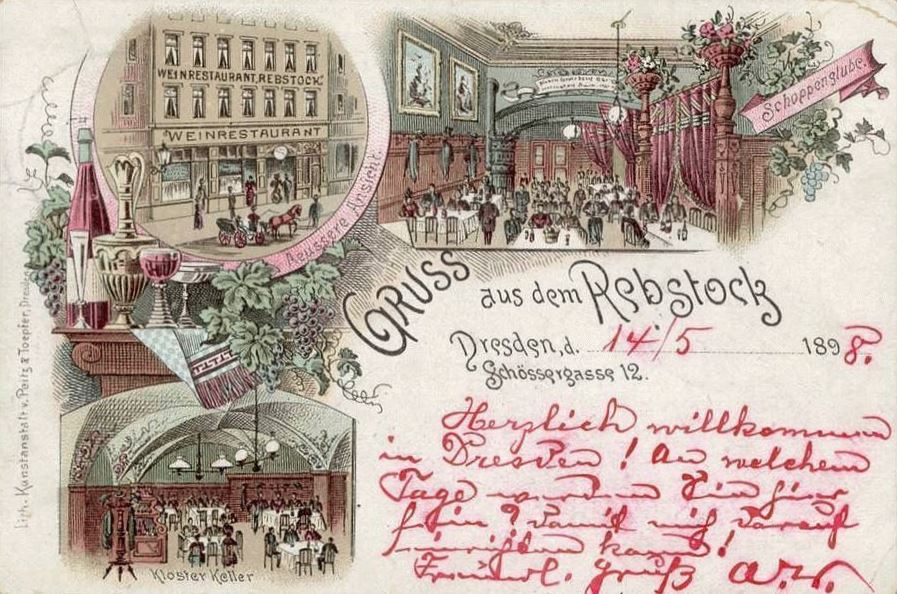 WEINRESTAURANT, REBSTOCK
WEINRESTAURANT
Aeussere Ansicht.
Schoppenstube.
GRUSS aus dem Rebstock
Dresden, d. 14/5 1898.
Schössergasse 12.
Herzlich willkommen
in Dresden! An welchem
Tage werden Sie hier
sein? damit mich darauf
einrichten kann!
Freundl. Gruß A.W.
Kloster Keller
Lith. Kunstanstalt v. Peitz & Toepfer, Dresden